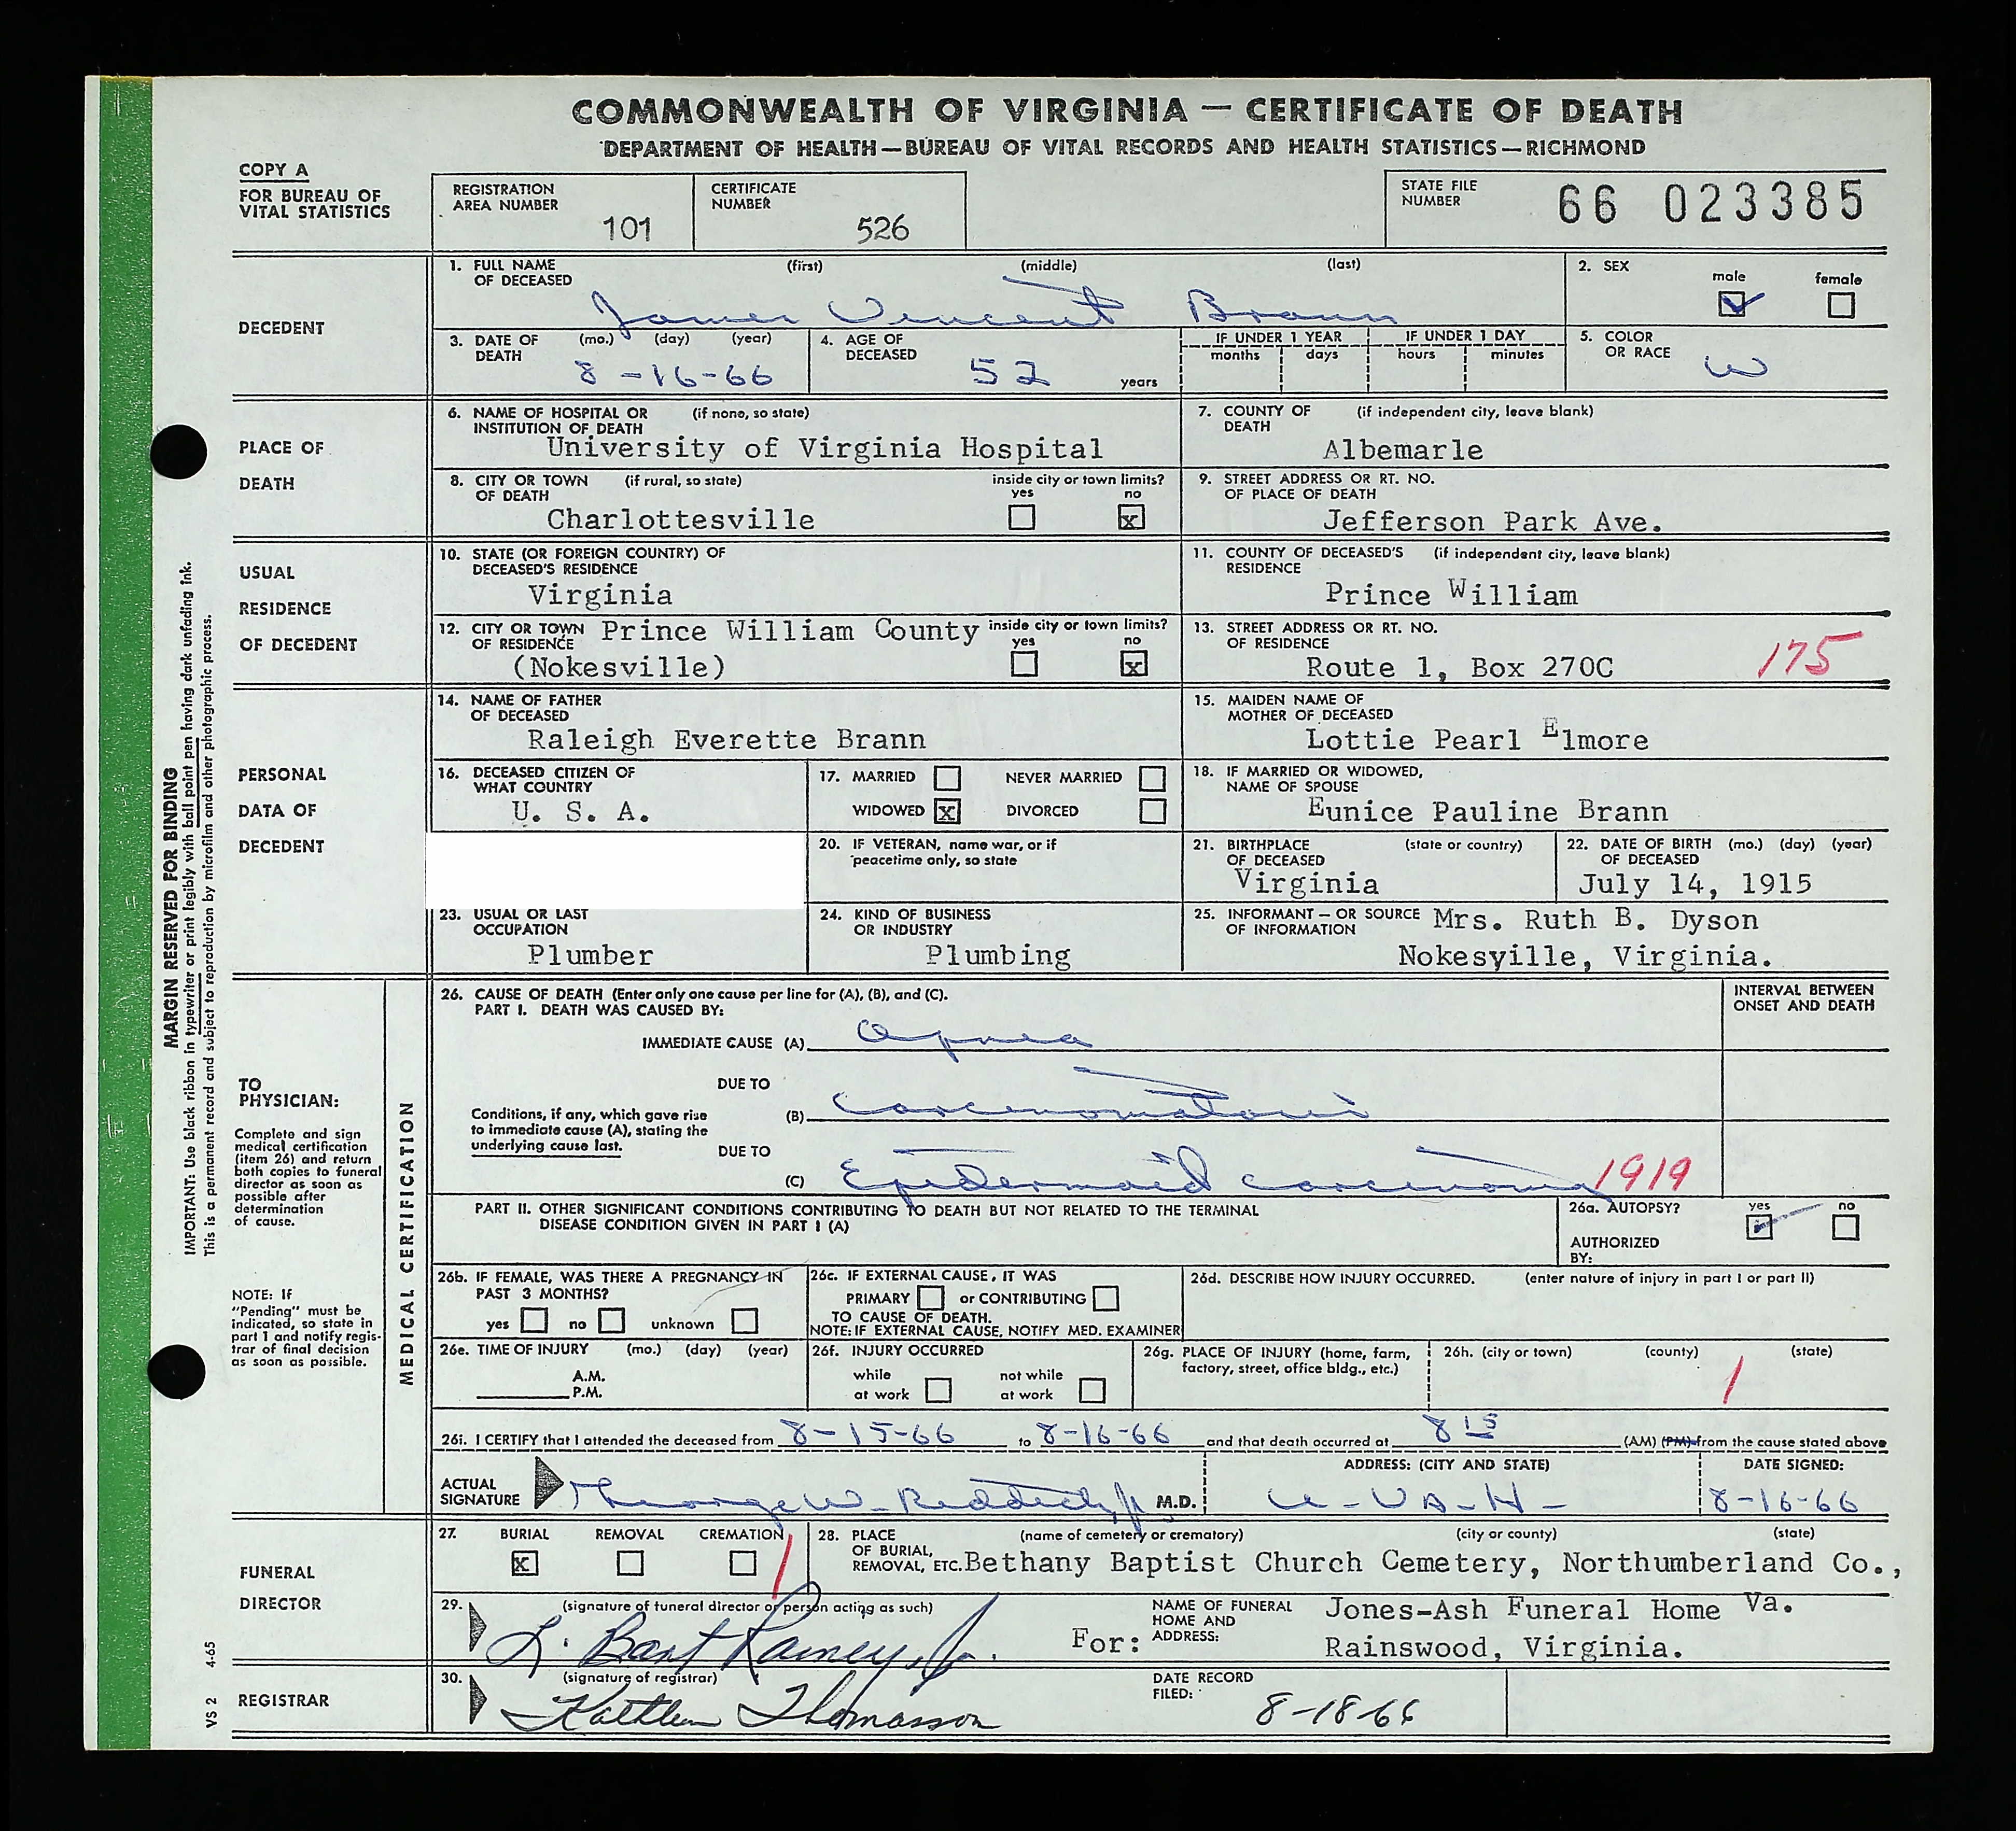 COMMONWEALTH OF VIRGINIA — CERTIFICATE OF DEATH
DEPARTMENT OF HEALTH—BUREAU OF VITAL RECORDS AND HEALTH STATISTICS—RICHMOND
COPY A
FOR BUREAU OF
VITAL STATISTICS
REGISTRATION
AREA NUMBER
101
CERTIFICATE
NUMBER
526
STATE FILE
NUMBER
66 023385
DECEDENT
1. FULL NAME
OF DECEASED
(first) (middle) (last)
James Vincent Brann
2. SEX
male female
3. DATE OF
DEATH
(mo.) (day) (year)
8-16-66
4. AGE OF
DECEASED
52
years
IF UNDER 1 YEAR
months days
IF UNDER 1 DAY
hours minutes
5. COLOR
OR RACE
W
PLACE OF
DEATH
6. NAME OF HOSPITAL OR (if none, so state)
INSTITUTION OF DEATH
University of Virginia Hospital
7. COUNTY OF (if independent city, leave blank)
DEATH
Albemarle
8. CITY OR TOWN (if rural, so state)
OF DEATH
Charlottesville
inside city or town limits?
yes no
x
9. STREET ADDRESS OR RT. NO.
OF PLACE OF DEATH
Jefferson Park Ave.
USUAL
RESIDENCE
OF DECEDENT
10. STATE (OR FOREIGN COUNTRY) OF
DECEASED'S RESIDENCE
Virginia
11. COUNTY OF DECEASED'S (if independent city, leave blank)
RESIDENCE
Prince William
12. CITY OR TOWN
OF RESIDENCE
Prince William County
(Nokesville)
inside city or town limits?
yes no
x
13. STREET ADDRESS OR RT. NO.
OF RESIDENCE
Route 1, Box 270C
175
PERSONAL
DATA OF
DECEDENT
14. NAME OF FATHER
OF DECEASED
Raleigh Everette Brann
15. MAIDEN NAME OF
MOTHER OF DECEASED
Lottie Pearl Elmore
16. DECEASED CITIZEN OF
WHAT COUNTRY
U. S. A.
17. MARRIED NEVER MARRIED
WIDOWED x DIVORCED
18. IF MARRIED OR WIDOWED,
NAME OF SPOUSE
Eunice Pauline Brann
20. IF VETERAN, name war, or if
peacetime only, so state
21. BIRTHPLACE (state or country)
OF DECEASED
Virginia
22. DATE OF BIRTH (mo.) (day) (year)
OF DECEASED
July 14, 1915
23. USUAL OR LAST
OCCUPATION
Plumber
24. KIND OF BUSINESS
OR INDUSTRY
Plumbing
25. INFORMANT — OR SOURCE
OF INFORMATION
Mrs. Ruth B. Dyson
Nokesyille, Virginia.
MARGIN RESERVED FOR BINDING
IMPORTANT: Use black ribbon in typewriter or print legibly with ball point pen having dark unfading ink.
This is a permanent record and subject to reproduction by microfilm and other photographic process.
TO
PHYSICIAN:
Complete and sign
medical certification
(item 26) and return
both copies to funeral
director as soon as
possible after
determination
of cause.
NOTE: If
"Pending" must be
indicated, so state in
part 1 and notify regis-
trar of final decision
as soon as possible.
MEDICAL CERTIFICATION
26. CAUSE OF DEATH (Enter only one cause per line for (A), (B), and (C).
PART I. DEATH WAS CAUSED BY:
INTERVAL BETWEEN
ONSET AND DEATH
IMMEDIATE CAUSE (A) apnea
DUE TO
Conditions, if any, which gave rise
to immediate cause (A), stating the
underlying cause last.
(B) carcinomatosis
DUE TO
(C) Epidermoid carcinoma 1919
PART II. OTHER SIGNIFICANT CONDITIONS CONTRIBUTING TO DEATH BUT NOT RELATED TO THE TERMINAL
DISEASE CONDITION GIVEN IN PART I (A)
26a. AUTOPSY?
yes no
AUTHORIZED
BY:
26b. IF FEMALE, WAS THERE A PREGNANCY IN
PAST 3 MONTHS?
yes no unknown
26c. IF EXTERNAL CAUSE, IT WAS
PRIMARY or CONTRIBUTING
TO CAUSE OF DEATH.
NOTE: IF EXTERNAL CAUSE, NOTIFY MED. EXAMINER
26d. DESCRIBE HOW INJURY OCCURRED. (enter nature of injury in part I or part II)
26e. TIME OF INJURY (mo.) (day) (year)
A.M.
P.M.
26f. INJURY OCCURRED
while
at work
not while
at work
26g. PLACE OF INJURY (home, farm,
factory, street, office bldg., etc.)
26h. (city or town) (county) (state)
1
26i. I CERTIFY that I attended the deceased from 8-15-66 to 8-16-66 and that death occurred at 8 15 (AM) (PM) from the cause stated above
ACTUAL
SIGNATURE
George W. M.D.
ADDRESS: (CITY AND STATE)
U-VA-H-
DATE SIGNED:
8-16-66
FUNERAL
DIRECTOR
27. BURIAL REMOVAL CREMATION
x
1
28. PLACE (name of cemetery or crematory) (city or county) (state)
OF BURIAL,
REMOVAL, ETC.
Bethany Baptist Church Cemetery, Northumberland Co.,
Va.
29. (signature of funeral director or person acting as such)
L. Bart Rainey, Jr.
For:
NAME OF FUNERAL
HOME AND
ADDRESS:
Jones-Ash Funeral Home
Rainswood, Virginia.
REGISTRAR
30. (signature of registrar)
Kathleen Thomasson
DATE RECORD
FILED:
8-18-66
VS 2 4-65